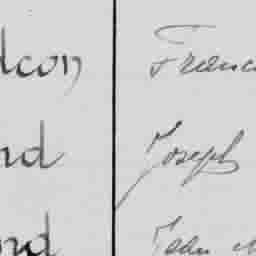 dcon Franc
nd Joseph
nd John